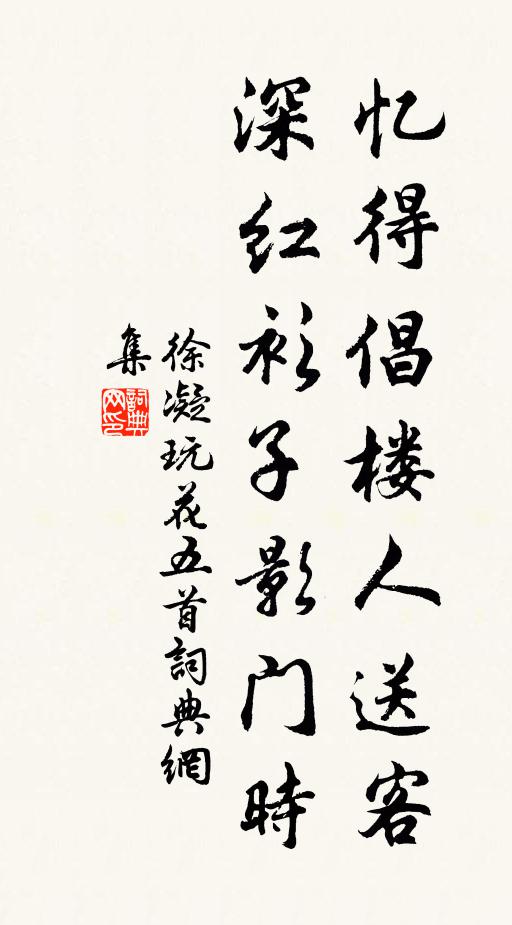 忆得倡楼人送客
深红衫子影门時
徐凝玩花五首詞典網
集
詞典
网印